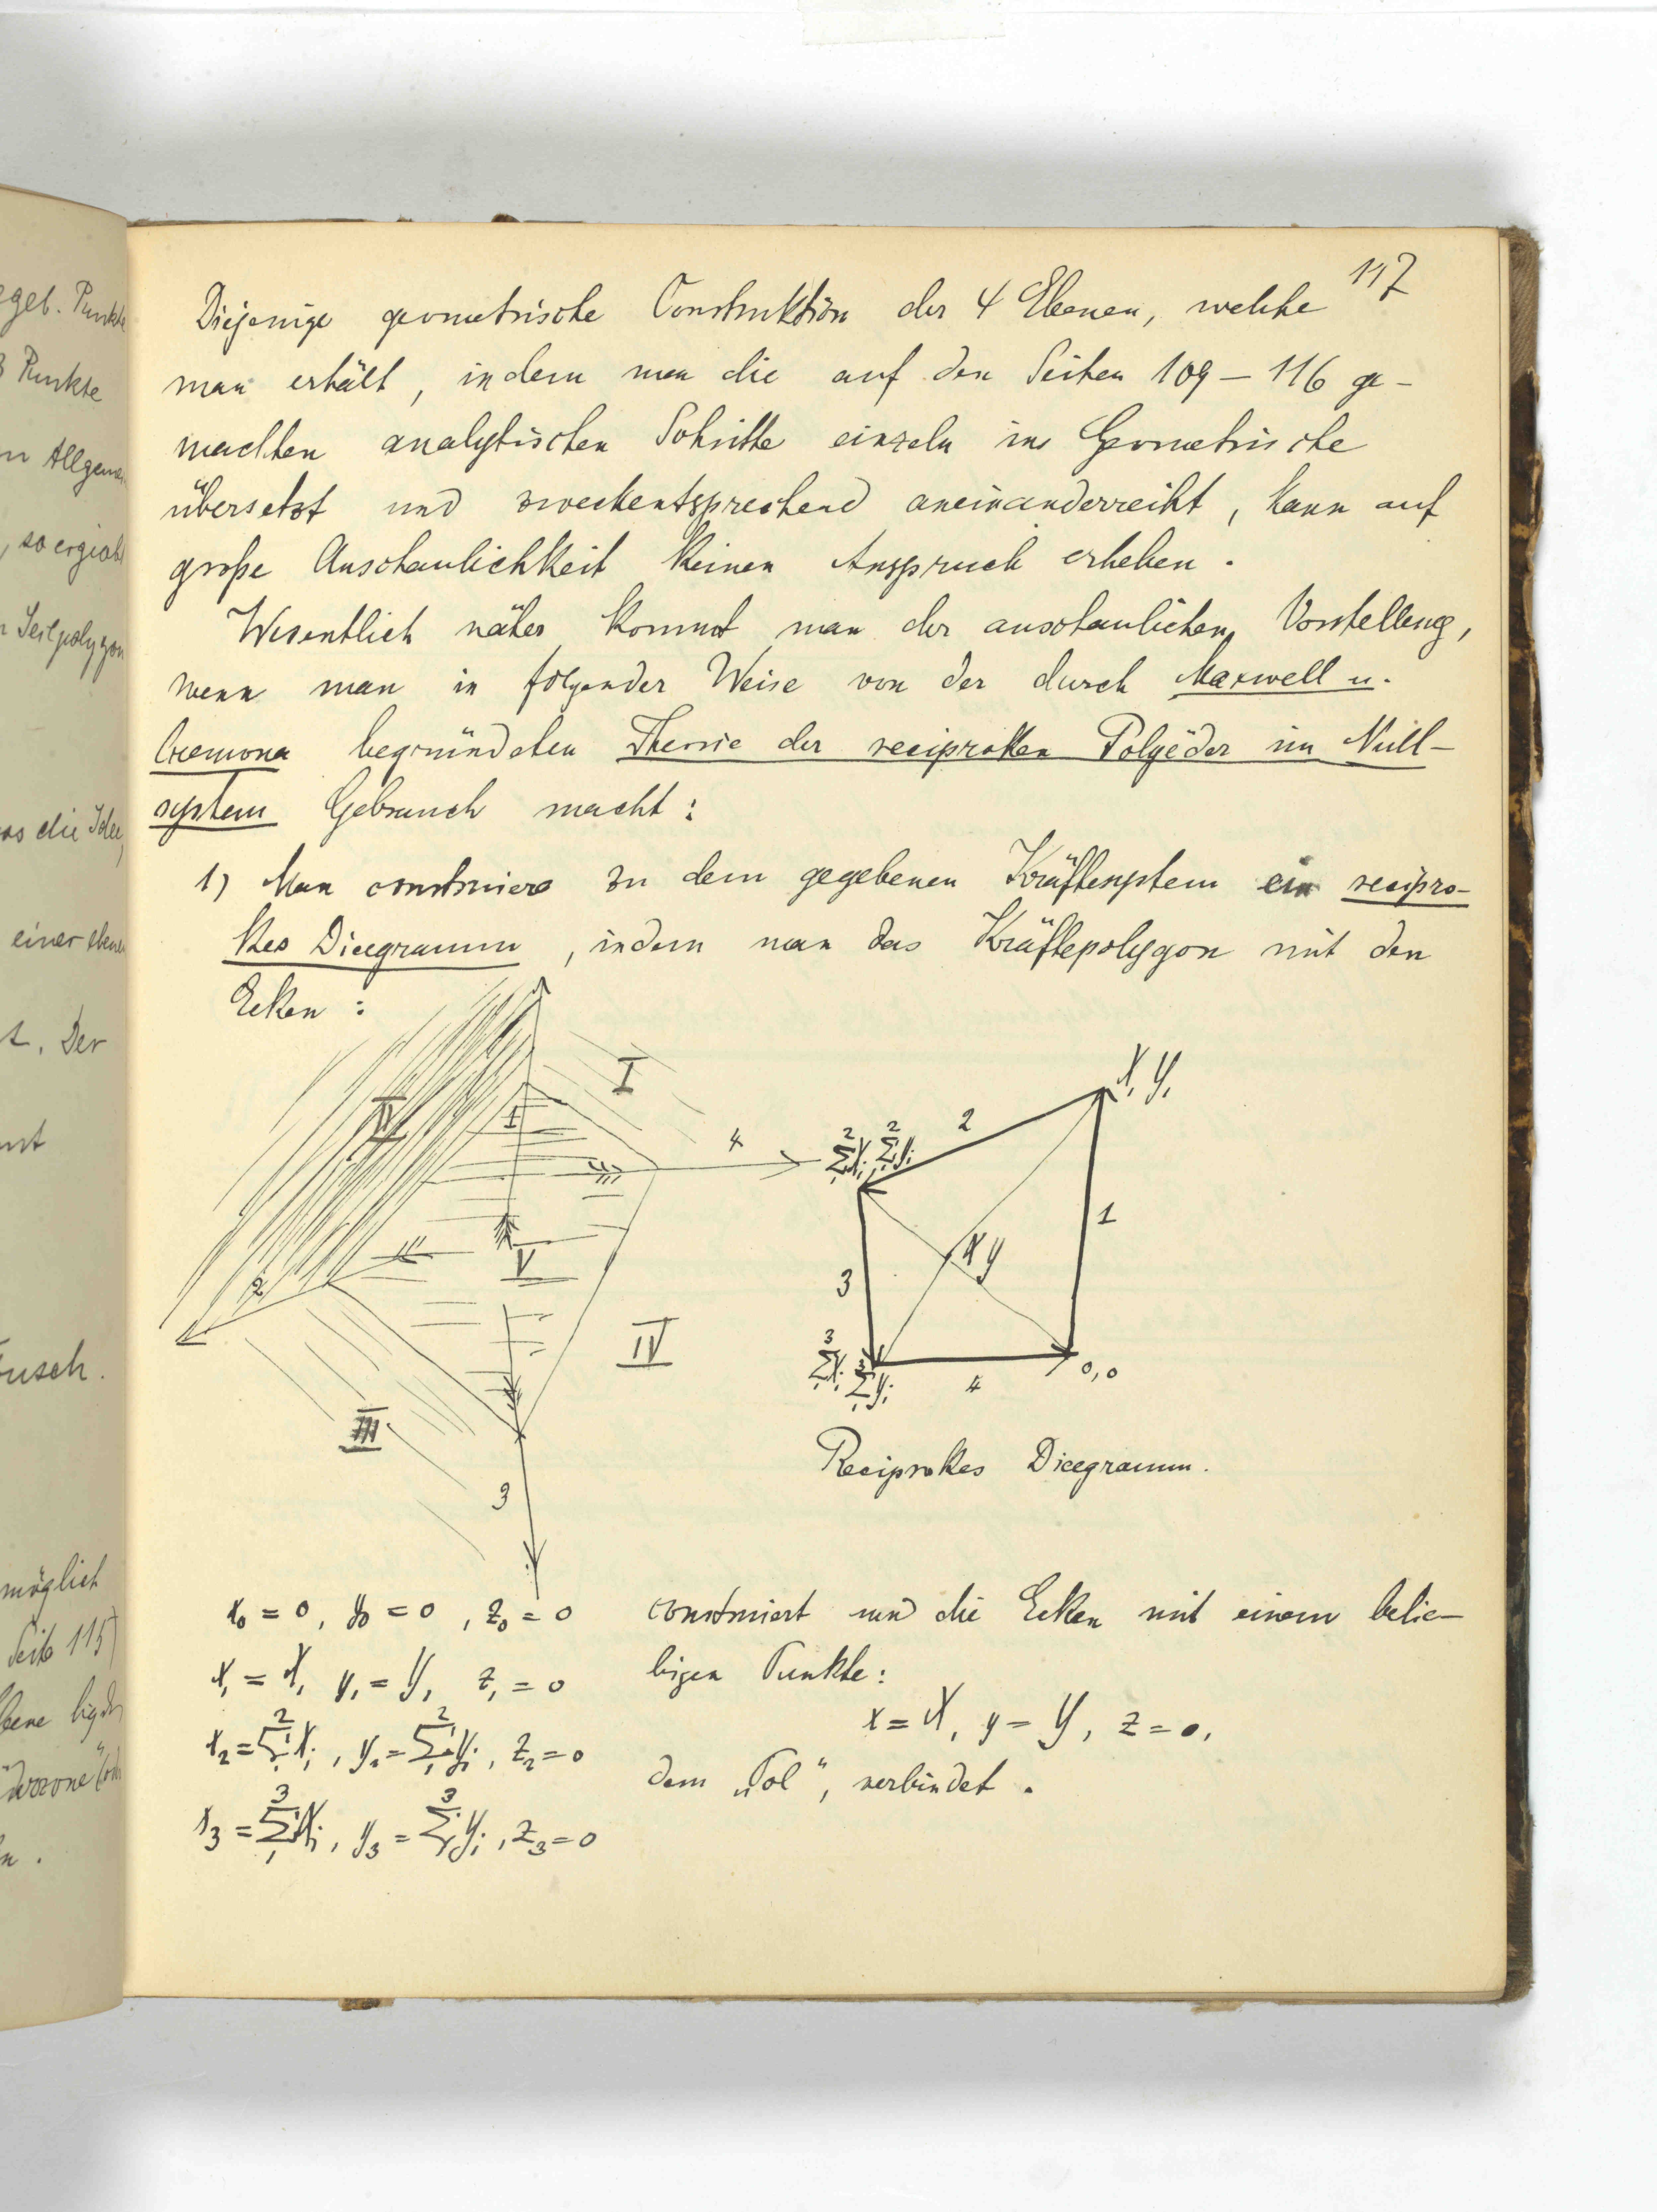 egel. Punkte
3 Punkte
n Allgemei
, so ergiebt
n Seilpolygon
as die Idee,
einer ebenen
t. Der
nt
usch.
möglich
Seite 115)
bene
n.
117
Diejenige geometrische Construktion der 4 Ebenen, welche
man erhält, indem man die auf den Seiten 109 – 116 ge-
machten analytischen Schritte einzeln ins Geometrische
übersetzt und zweckentsprechend aneinanderreiht, kann auf
große Anschaulichkeit keinen Anspruch erheben.
Wesentlich näher kommt man der anschaulichen Vorstellung,
wenn man in folgender Weise von der durch Maxwell u.
Cremona begründeten Theorie der reciproken Polyëder im Null-
system Gebrauch macht:
1) Man construiere zu dem gegebenen Kräftesystem ein recipro-
kes Diagramm, indem man das Kräftepolygon mit den
Ecken:
I
II
1
4
V
2
IV
III
3
X₁ Y₁
2
Σ₁²Xᵢ Σ₁²Yᵢ
1
X Y
3
Σ₁³Xᵢ Σ₁³Yᵢ
4
0,0
Reciprokes Diagramm.
x₀ = 0, y₀ = 0, z₀ = 0
x₁ = X₁ y₁ = Y₁ z₁ = 0
x₂ = Σ₁²Xᵢ, y₂ = Σ₁²Yᵢ, z₂ = 0
x₃ = Σ₁³Xᵢ, y₃ = Σ₁³Yᵢ, z₃ = 0
construiert und die Ecken mit einem belie-
bigen Punkte:
x = X, y = Y, z = 0,
dem „Pol“, verbindet.